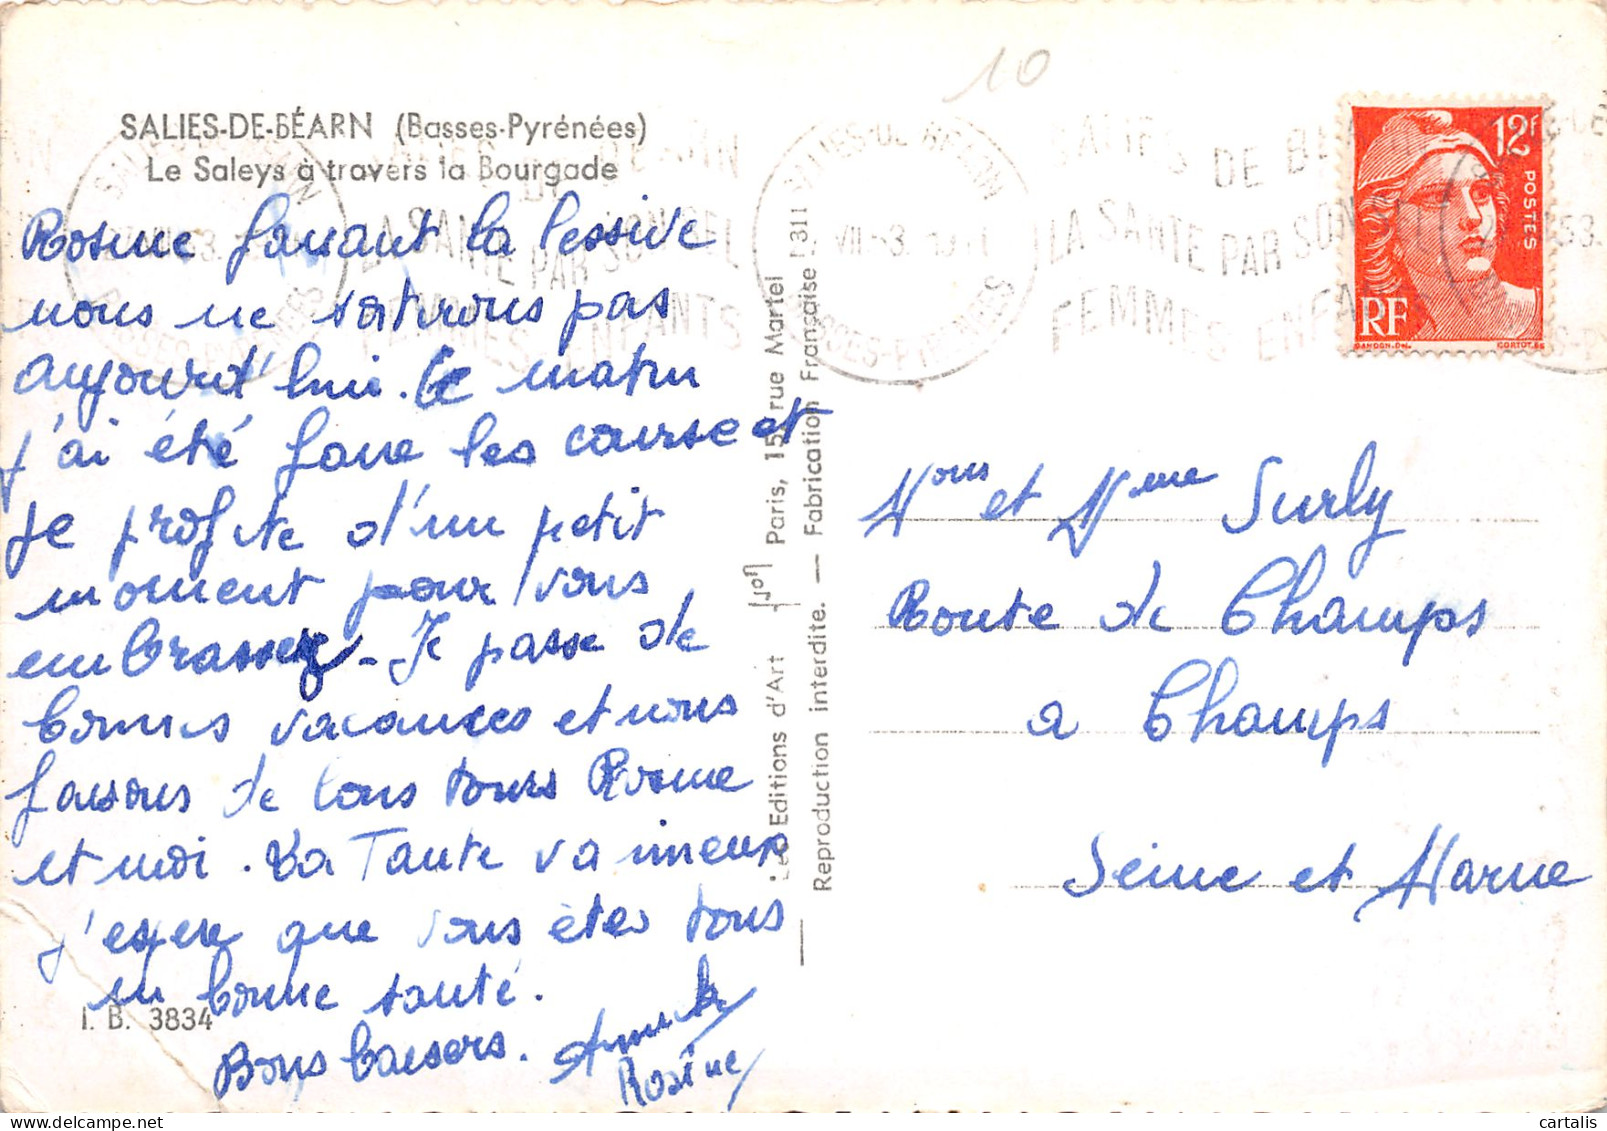 10
SALIES-DE-BÉARN (Basses-Pyrénées)
Le Saleys à travers la Bourgade
Rosine faisant la lessive
nous ne sortirons pas
aujourd'hui. Ce matin
j'ai été faire les course et
je profite d'un petit
moment pour vous
embrasser - Je passe de
bonnes vacances et nous
faisons de bons tours Rosine
et moi. La Tante va mieux
j'espère que vous êtes tous
en bonne santé.
Bons baisers.
Rosine
I. B. 3834
Les Editions d'Art Paris, 15, rue Martel
Reproduction interdite. — Fabrication Française
311
SALIES-DE-BEARN
BASSES-PYRENEES
SALIES DE BEARN
LA SANTE PAR SON SEL
FEMMES ENFANTS
12f
POSTES
RF
GANDON.DEL.
CORTOT.SC
Mons et Mme Surly
Route de Champs
a Champs
Seine et Marne
cartalis